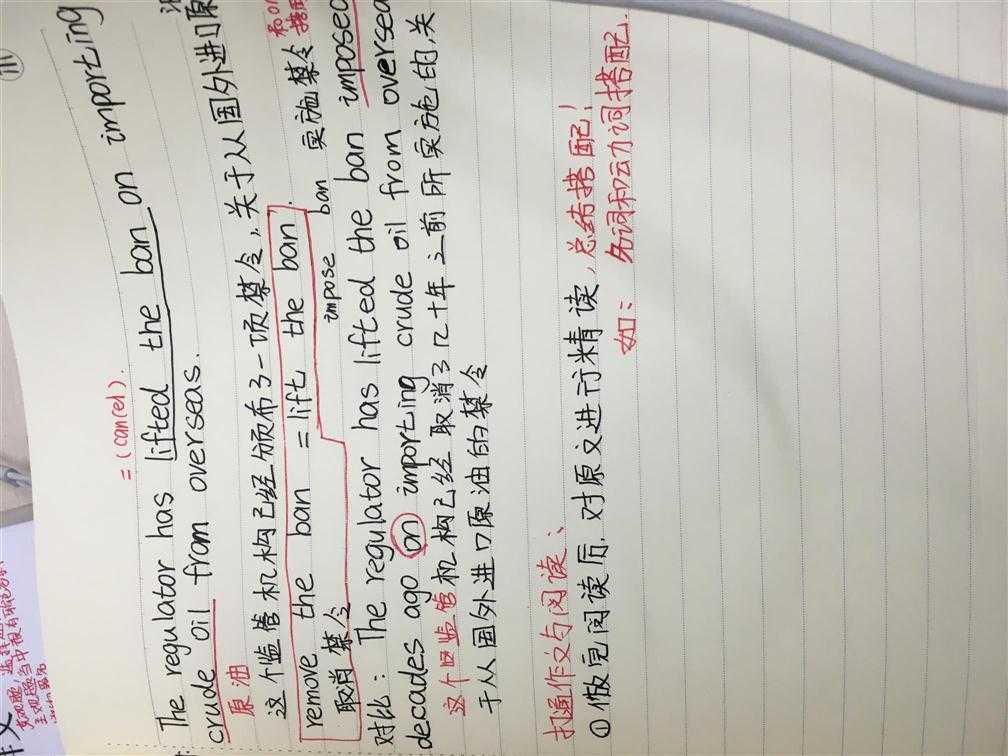 = (cancel).
The regulator has lifted the ban on importing
crude oil from overseas.
原油
这个监管机构已经颁布了一项禁令,关于从国外进口原
remove the ban = lift the ban.
impose ban 实施禁令
取消禁令
对比: The regulator has lifted the ban imposed
decades ago on importing crude oil from oversea
这个监管机构已经取消了几十年之前所实施的,关
于从国外进口原油的禁令
打通作文与阅读:
①做完阅读后,对原文进行精读,总结搭配!
如: 名词和动词搭配.